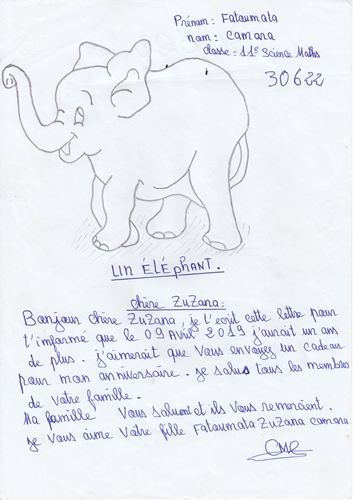 Prénom : Fatoumata
nom : camara
classe : 11e Science Maths
30622
UN ÉLÉPHANT.
chère ZuZana :
Bonjour chère ZuZana, je t'ecrit cette lettre pour
t'informé que le 09 Avril 2019 j'aurait un ans
de plus. j'aimerait que vous envoyez un cadeau
pour mon anniversaire. je salus tous les membres
de votre famille.
Ma famille vous saluent et ils vous remercient.
je vous aime votre fille Fatoumata ZuZana camara